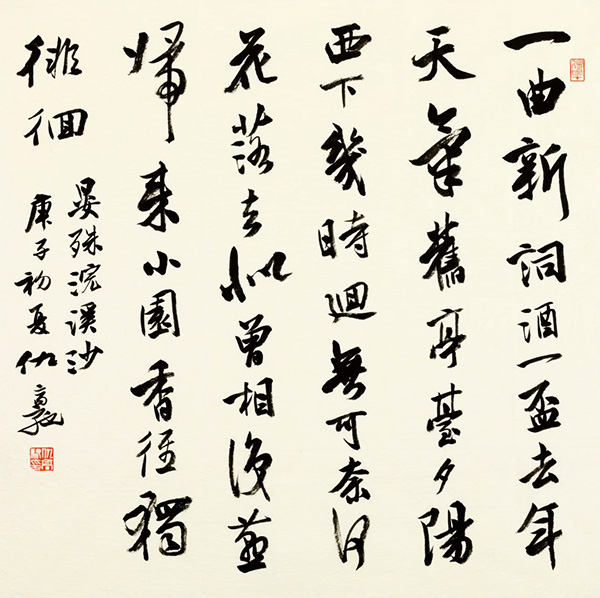 一曲新詞酒一盃去年
天氣舊亭臺夕陽
西下幾時迴無可奈何
花落去似曾相識燕
歸來小園香徑獨
徘徊
晏殊浣溪沙
庚子初夏仇